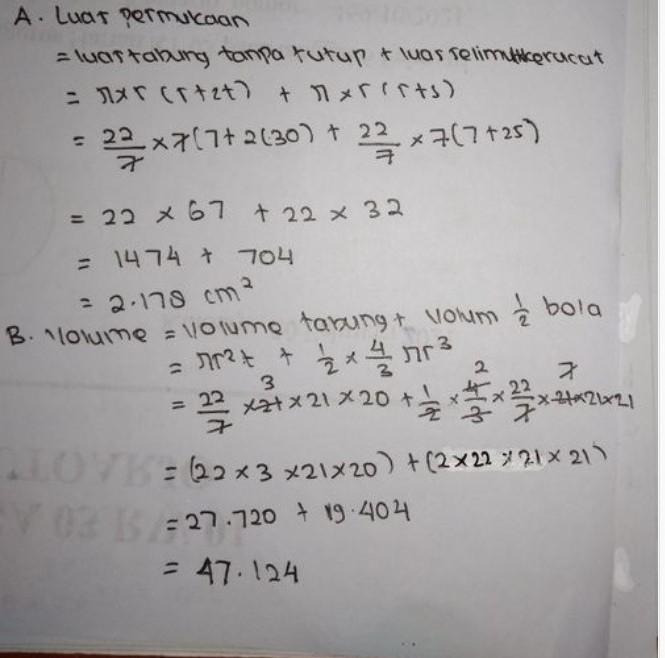 A. Luas permukaan
= luas tabung tanpa tutup + luas selimut kerucut
= π x r (r + 2t) + π x r (r + s)
= 22/7 x 7 (7 + 2(30) + 22/7 x 7 (7 + 25)
= 22 x 67 + 22 x 32
= 1474 + 704
= 2.178 cm²
B. Volume = volume tabung + volum 1/2 bola
= πr²t + 1/2 x 4/3 πr³
3 2 7
= 22/7 x 21 x 21 x 20 + 1/2 x 4/3 x 22/7 x 21 x 21 x 21
= (22 x 3 x 21 x 20) + (2 x 22 x 21 x 21)
= 27.720 + 19.404
= 47.124